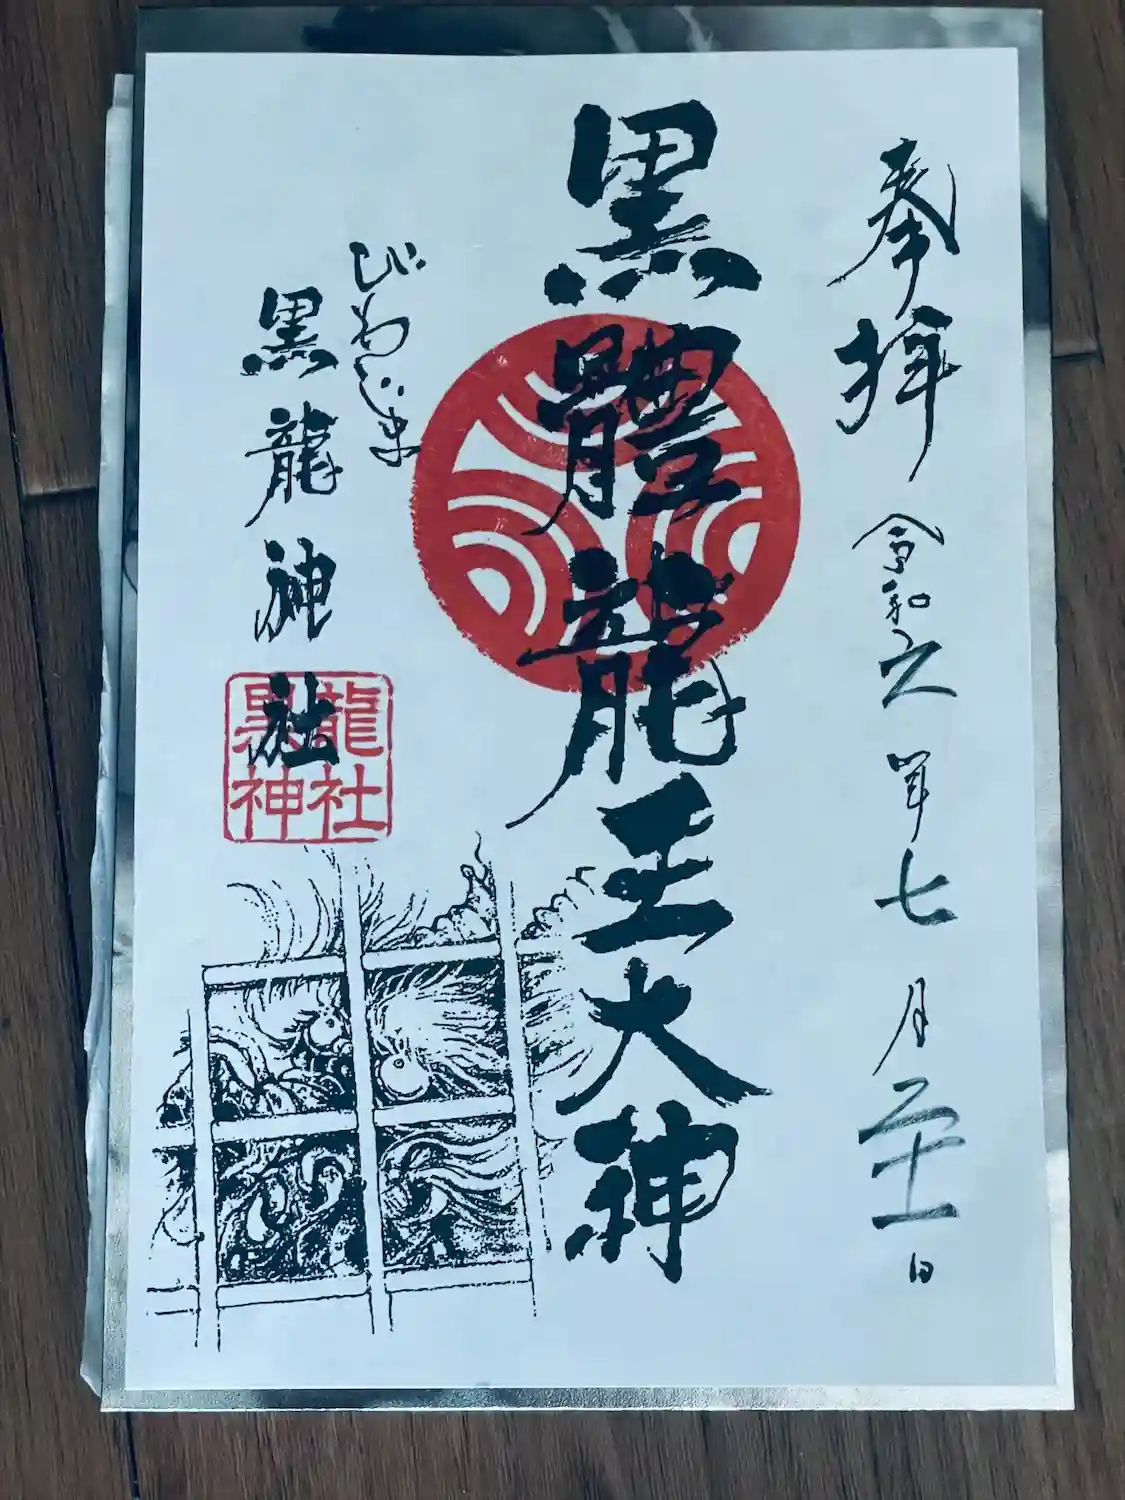 奉拝 令和元年七月二十一日
黒體龍王大神
びわじま
黒龍神社
黒龍
神社